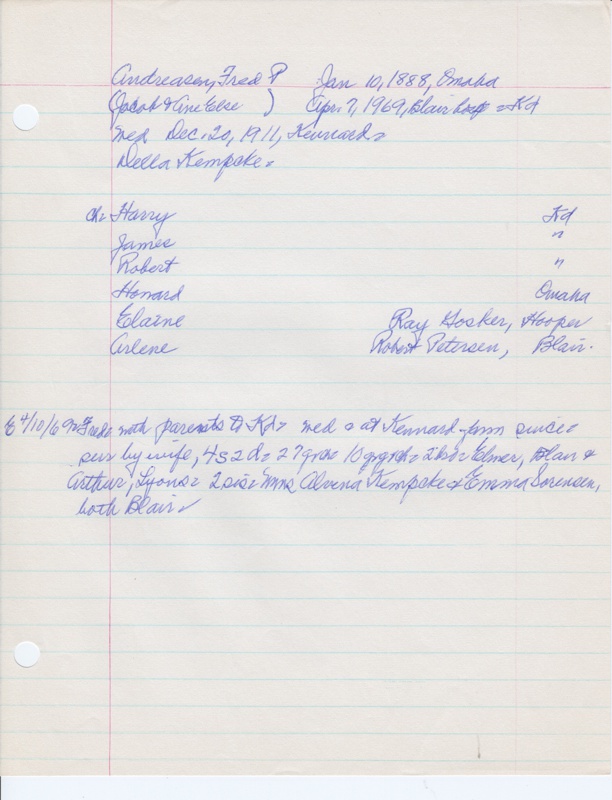 Andreasen, Fred P Jan 10, 1888, Omaha
(Jacob & Ane Else ) Apr. 7, 1969, Blair hosp = Kd
med Dec. 20, 1911, Kennard =
Della Kempcke =
ch = Harry Kd
James "
Robert "
Howard Omaha
Elaine Ray Hosker, Hooper
Arlene Robert Petersen, Blair.
E 4/10/69 = Fred with parents to Kd = med = at Kennard farm since =
sur by wife, 4 s 2 d = 27 grch = 10 grgrch = 2 bro = Elmer, Blair &
Arthur, Lyons = 2 sis = Mms Alvena Kempcke & Emma Sorensen,
both Blair =